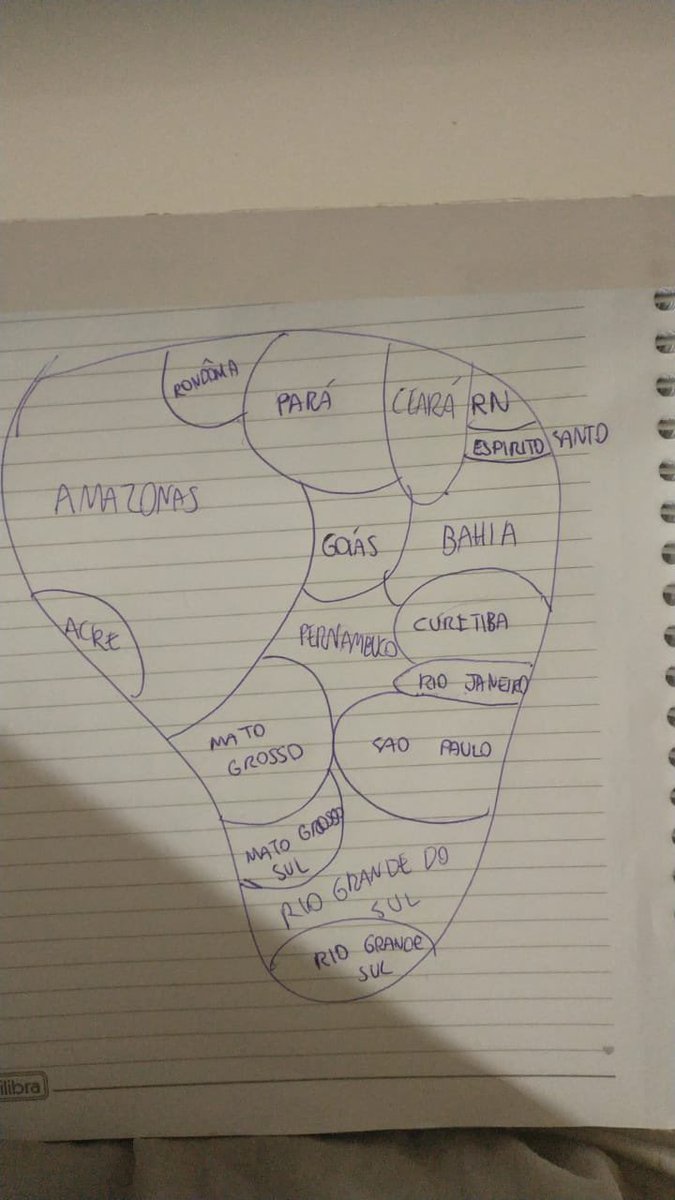 RONDÔNIA
PARÁ
CEARÁ
RN
ESPIRITO SANTO
AMAZONAS
GOIÁS
BAHIA
ACRE
PERNAMBUCO
CURITIBA
RIO JANEIRO
MATO
GROSSO
SAO PAULO
MATO GROSSO
SUL
RIO GRANDE DO
SUL
RIO GRANDE
SUL
ilibra